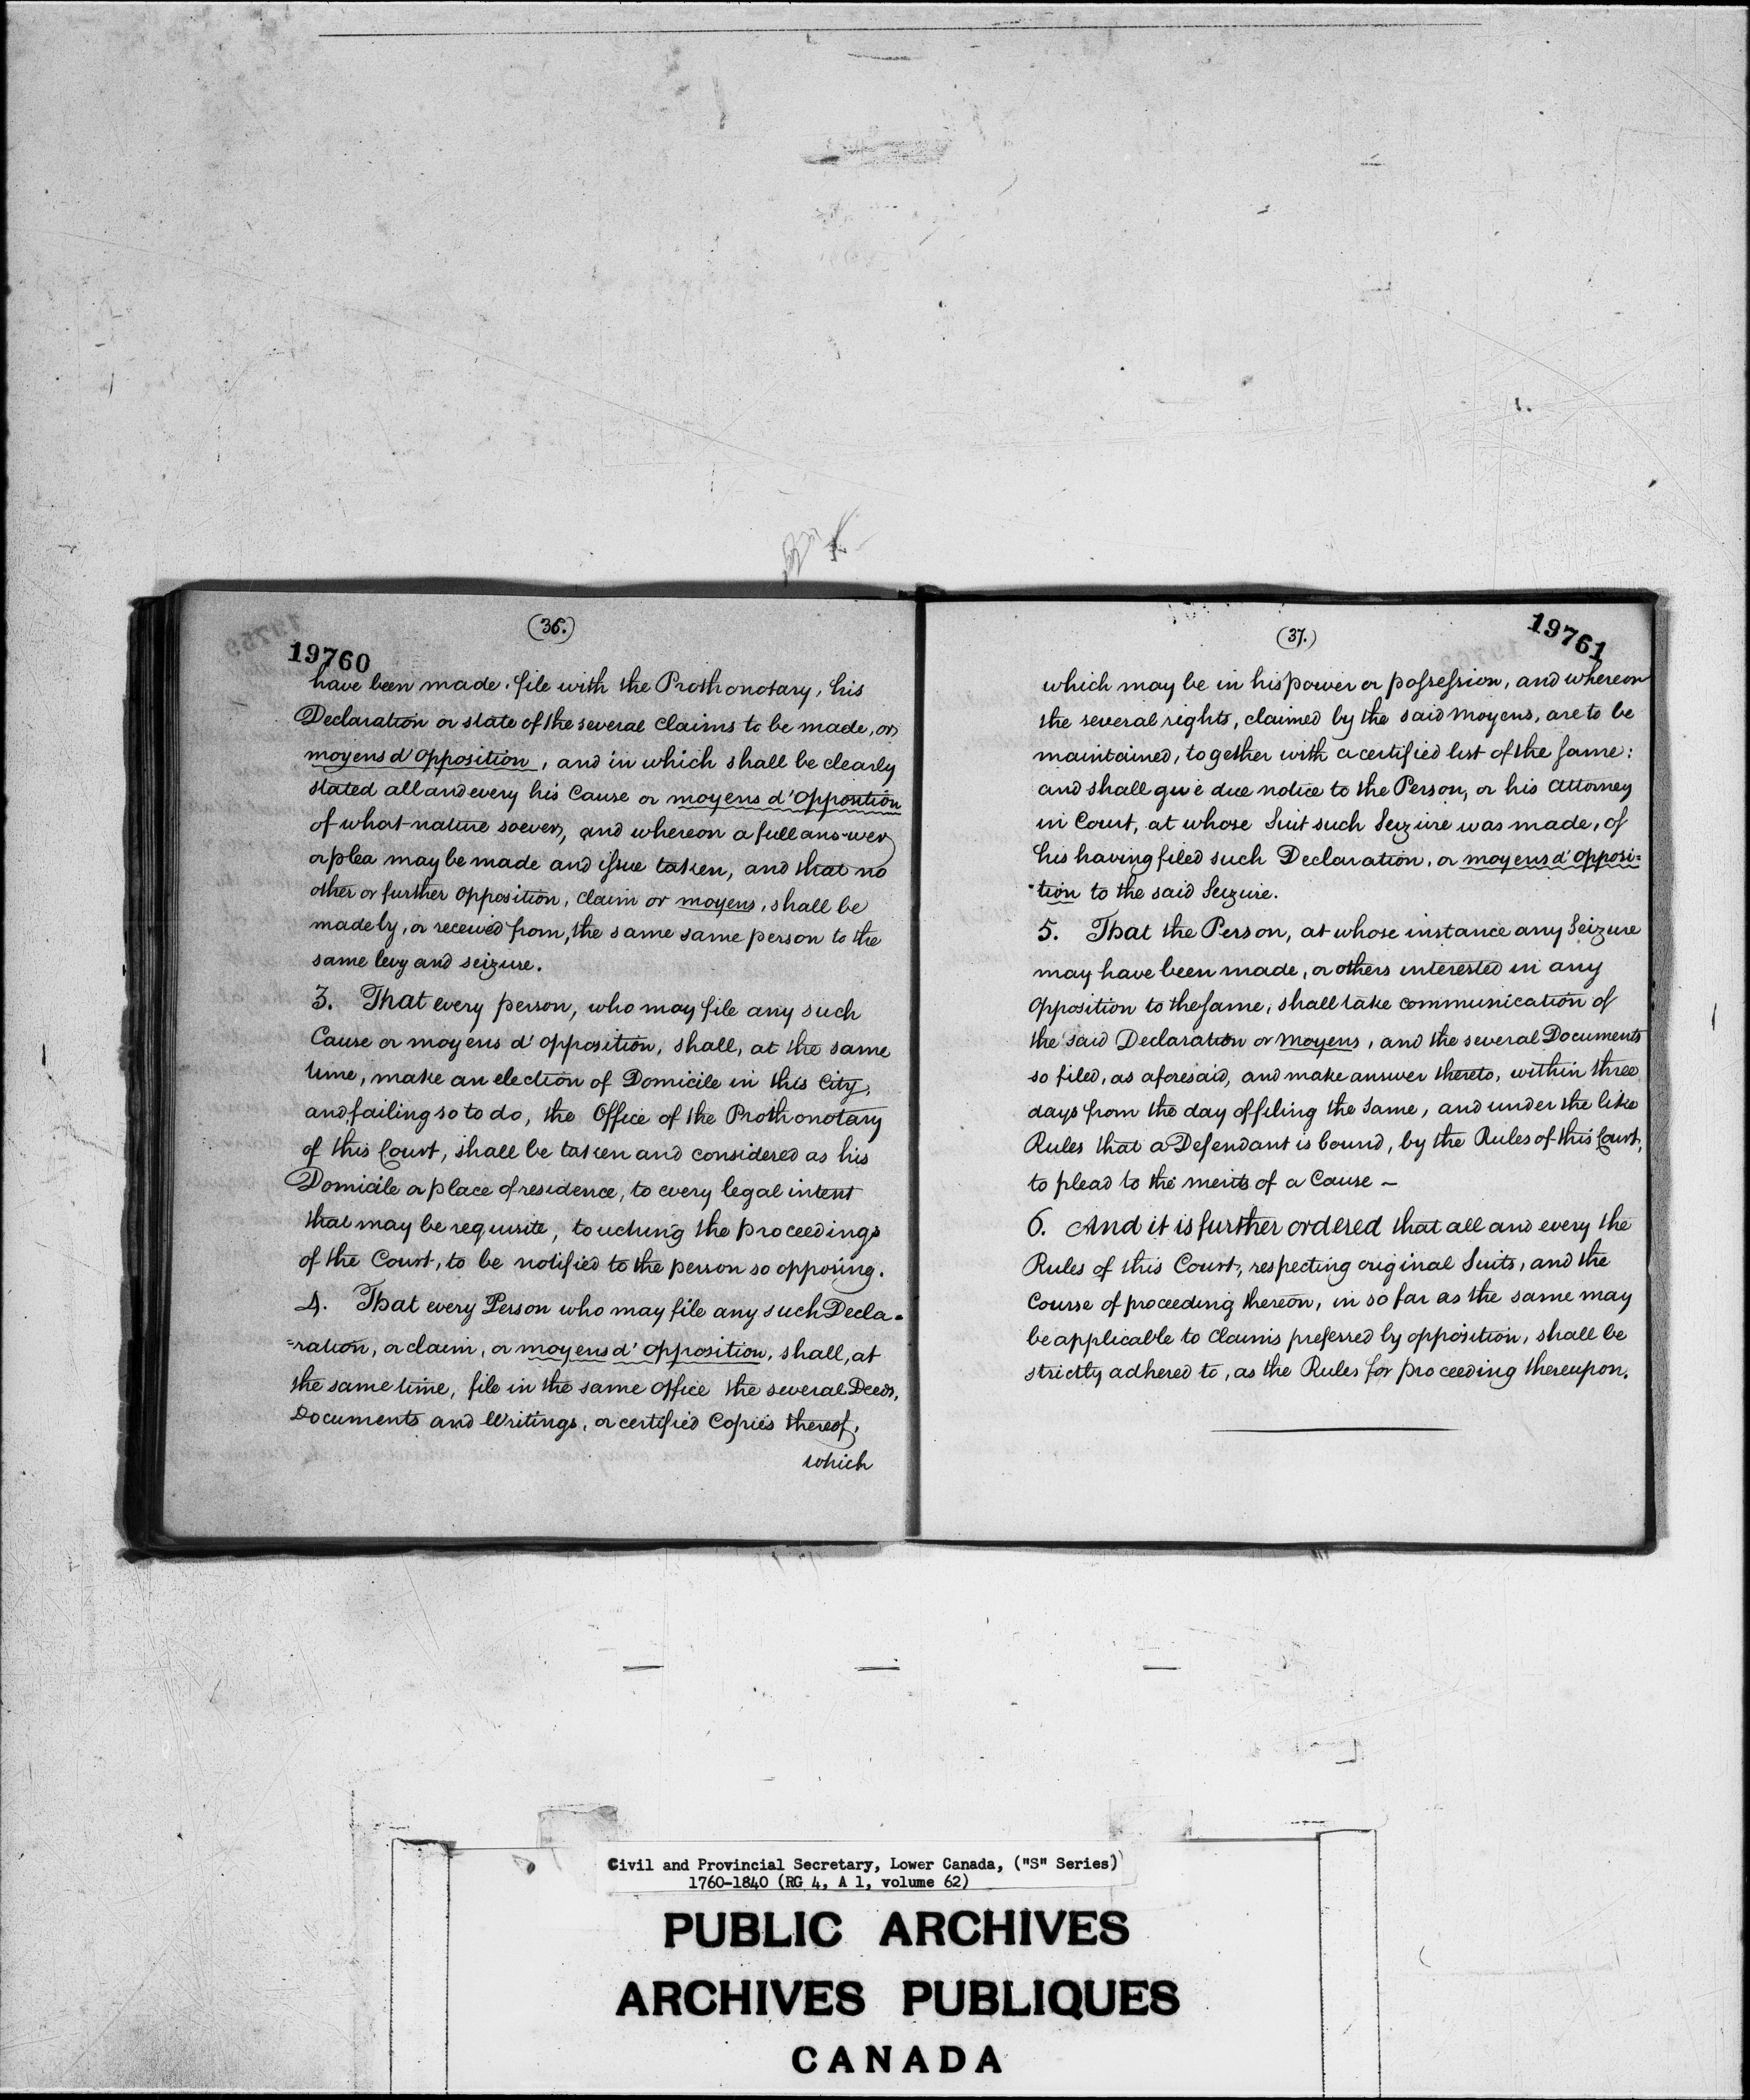 (36.)
19760
have been made, file with the Prothonotary, his
Declaration or state of the several claims to be made, or
moyens d'opposition, and in which shall be clearly
stated all and every his Cause or moyens d'Opposition
of what nature soever, and whereon a full answer
or plea may be made and issue taken, and that no
other or further opposition, claim or moyens, shall be
made by, or received from, the same same person to the
same levy and seizure.
3. That every person, who may file any such
Cause or moyens d'opposition, shall, at the same
time, make an election of Domicile in this City,
and failing so to do, the Office of the Prothonotary
of this Court, shall be taken and considered as his
Domicile or place of residence, to every legal intent
that may be requisite, touching the proceedings
of the Court, to be notified to the person so opposing.
4. That every Person who may file any such Decla=
=ration, or claim, or moyens d'opposition, shall, at
the same time, file in the same office the several Deeds,
Documents and Writings, or certified Copies thereof,
which
(37.)
19761
which may be in his power or possession, and whereon
the several rights, claimed by the said moyens, are to be
maintained, together with a certified list of the same:
and shall give due notice to the Person, or his Attorney
in Court, at whose Suit such Seizure was made, of
his having filed such Declaration, or moyens d'opposi=
=tion to the said Seizure.
5. That the Person, at whose instance any Seizure
may have been made, or others interested in any
Opposition to the same, shall take communication of
the said Declaration or moyens, and the several Documents
so filed, as aforesaid, and make answer thereto, within three
days from the day of filing the same, and under the like
Rules that a Defendant is bound, by the Rules of this Court,
to plead to the merits of a Cause —
6. And it is further ordered that all and every the
Rules of this Court, respecting original Suits, and the
Course of proceeding thereon, in so far as the same may
be applicable to claims preferred by opposition, shall be
strictly adhered to, as the Rules for proceeding thereupon.
Civil and Provincial Secretary, Lower Canada, ("S" Series)
1760-1840 (RG 4, A 1, volume 62)
PUBLIC ARCHIVES
ARCHIVES PUBLIQUES
CANADA